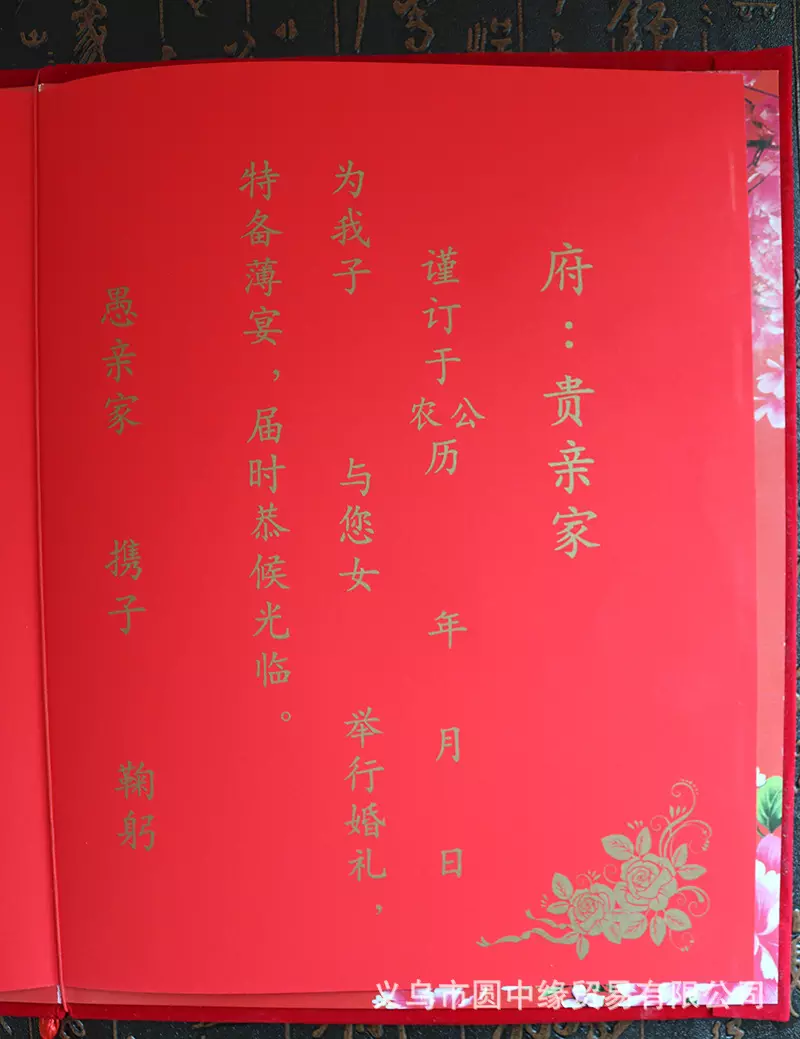 府：贵亲家
谨订于公农历 年 月 日
为我子 与您女 举行婚礼，
特备薄宴，届时恭候光临。
愚亲家 携子 鞠躬
义乌市圆中缘贸易有限公司